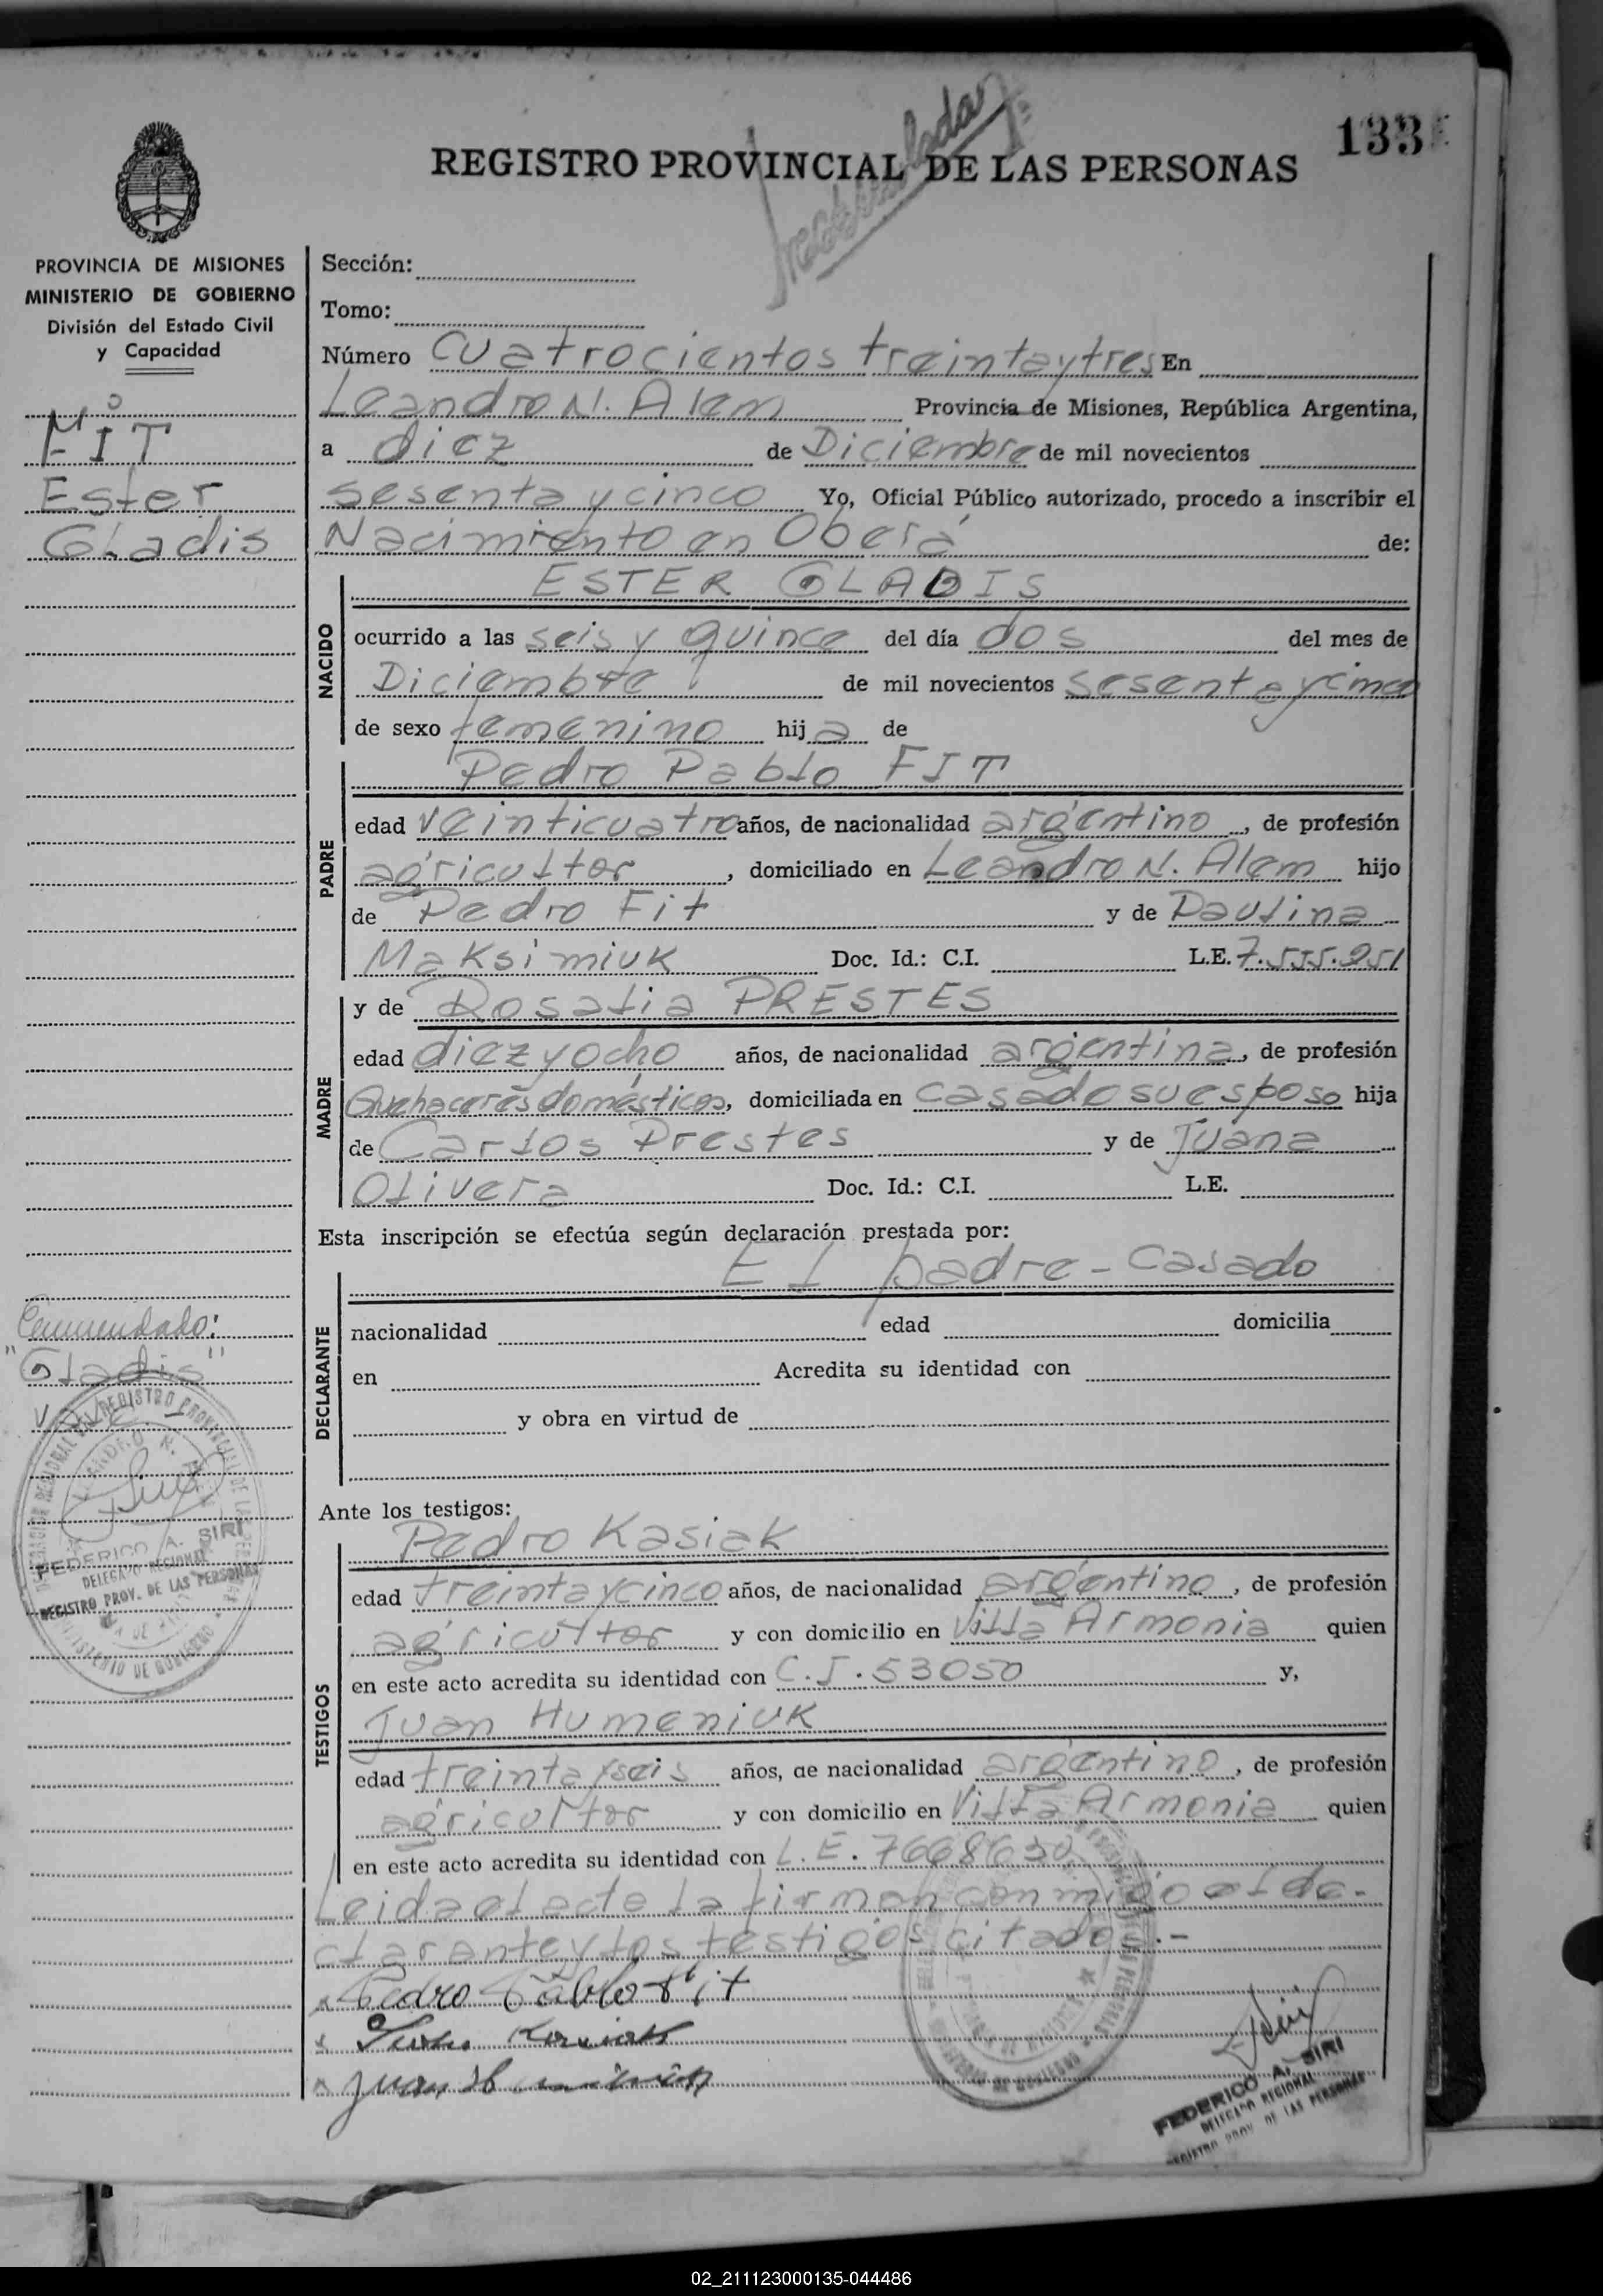 133
REGISTRO PROVINCIAL DE LAS PERSONAS
PROVINCIA DE MISIONES
MINISTERIO DE GOBIERNO
División del Estado Civil
y Capacidad
FIT
Ester
Gladis
Sección:
Tomo:
Número cuatrocientos treinta y tres En
Leandro N. Alem Provincia de Misiones, República Argentina,
a diez de Diciembre de mil novecientos
sesenta y cinco Yo, Oficial Público autorizado, procedo a inscribir el
Nacimiento en Oberá de:
NACIDO
ESTER GLADIS
ocurrido a las seis y quince del día dos del mes de
Diciembre de mil novecientos sesenta y cinco
de sexo femenino hija de
PADRE
Pedro Pablo FIT
edad veinticuatro años, de nacionalidad argentino, de profesión
agricultor, domiciliado en Leandro N. Alem hijo
de Pedro Fit y de Paulina
Maksimiuk Doc. Id.: C.I. L.E. 7.555.951
MADRE
y de Rosalia PRESTES
edad diez y ocho años, de nacionalidad argentina, de profesión
Quehaceres domésticos, domiciliada en casa de su esposo hija
de Carlos Prestes y de Juana
Olivera Doc. Id.: C.I. L.E.
Esta inscripción se efectúa según declaración prestada por:
DECLARANTE
El padre - casado
nacionalidad edad domicilia
en Acredita su identidad con
y obra en virtud de
Enmendado:
"Gladis"
Vale
FEDERICO A. SIRI
DELEGADO REGIONAL
REGISTRO PROV. DE LAS PERSONAS
Ante los testigos:
TESTIGOS
Pedro Kasiak
edad treinta y cinco años, de nacionalidad argentino, de profesión
agricultor y con domicilio en Villa Armonia quien
en este acto acredita su identidad con C.I. 53050 y,
Juan Humeniuk
edad treinta y seis años, de nacionalidad argentino, de profesión
agricultor y con domicilio en Villa Armonia quien
en este acto acredita su identidad con L.E. 7668630
Leida el acta la firman conmigo el de-
clarante y los testigos citados.-
Pedro Pablo Fit
Kasiak
Juan
FEDERICO A. SIRI
DELEGADO REGIONAL
REGISTRO PROV. DE LAS PERSONAS
02_211123000135-044486